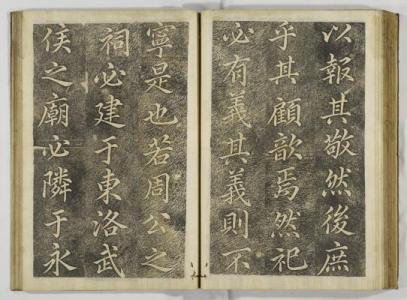 以報其敬然後庶
乎其顧歆焉然祀
必有義其義則不
寧是也若周公之
祠必建于東洛武
侯之廟必隣于永